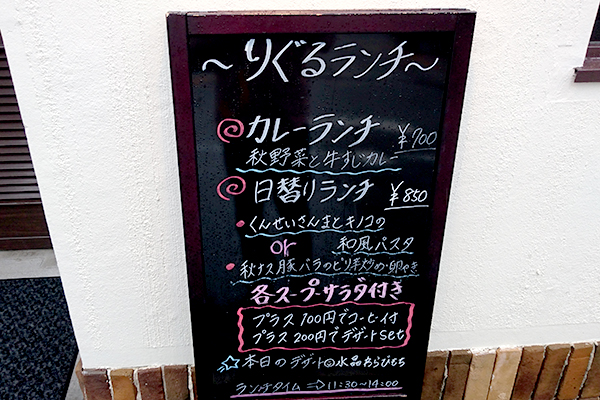 ～りぐるランチ～
カレーランチ ¥700
秋野菜と牛すじカレー
日替りランチ ¥850
・くんせいさんまとキノコの
or 和風パスタ
・秋ナス豚バラのピリ辛炒め・卵やき
各スープ・サラダ付き
プラス100円でコーヒー付
プラス200円でデザートSet
☆本日のデザート◎水晶わらびもち
ランチタイム⇒11:30~14:00